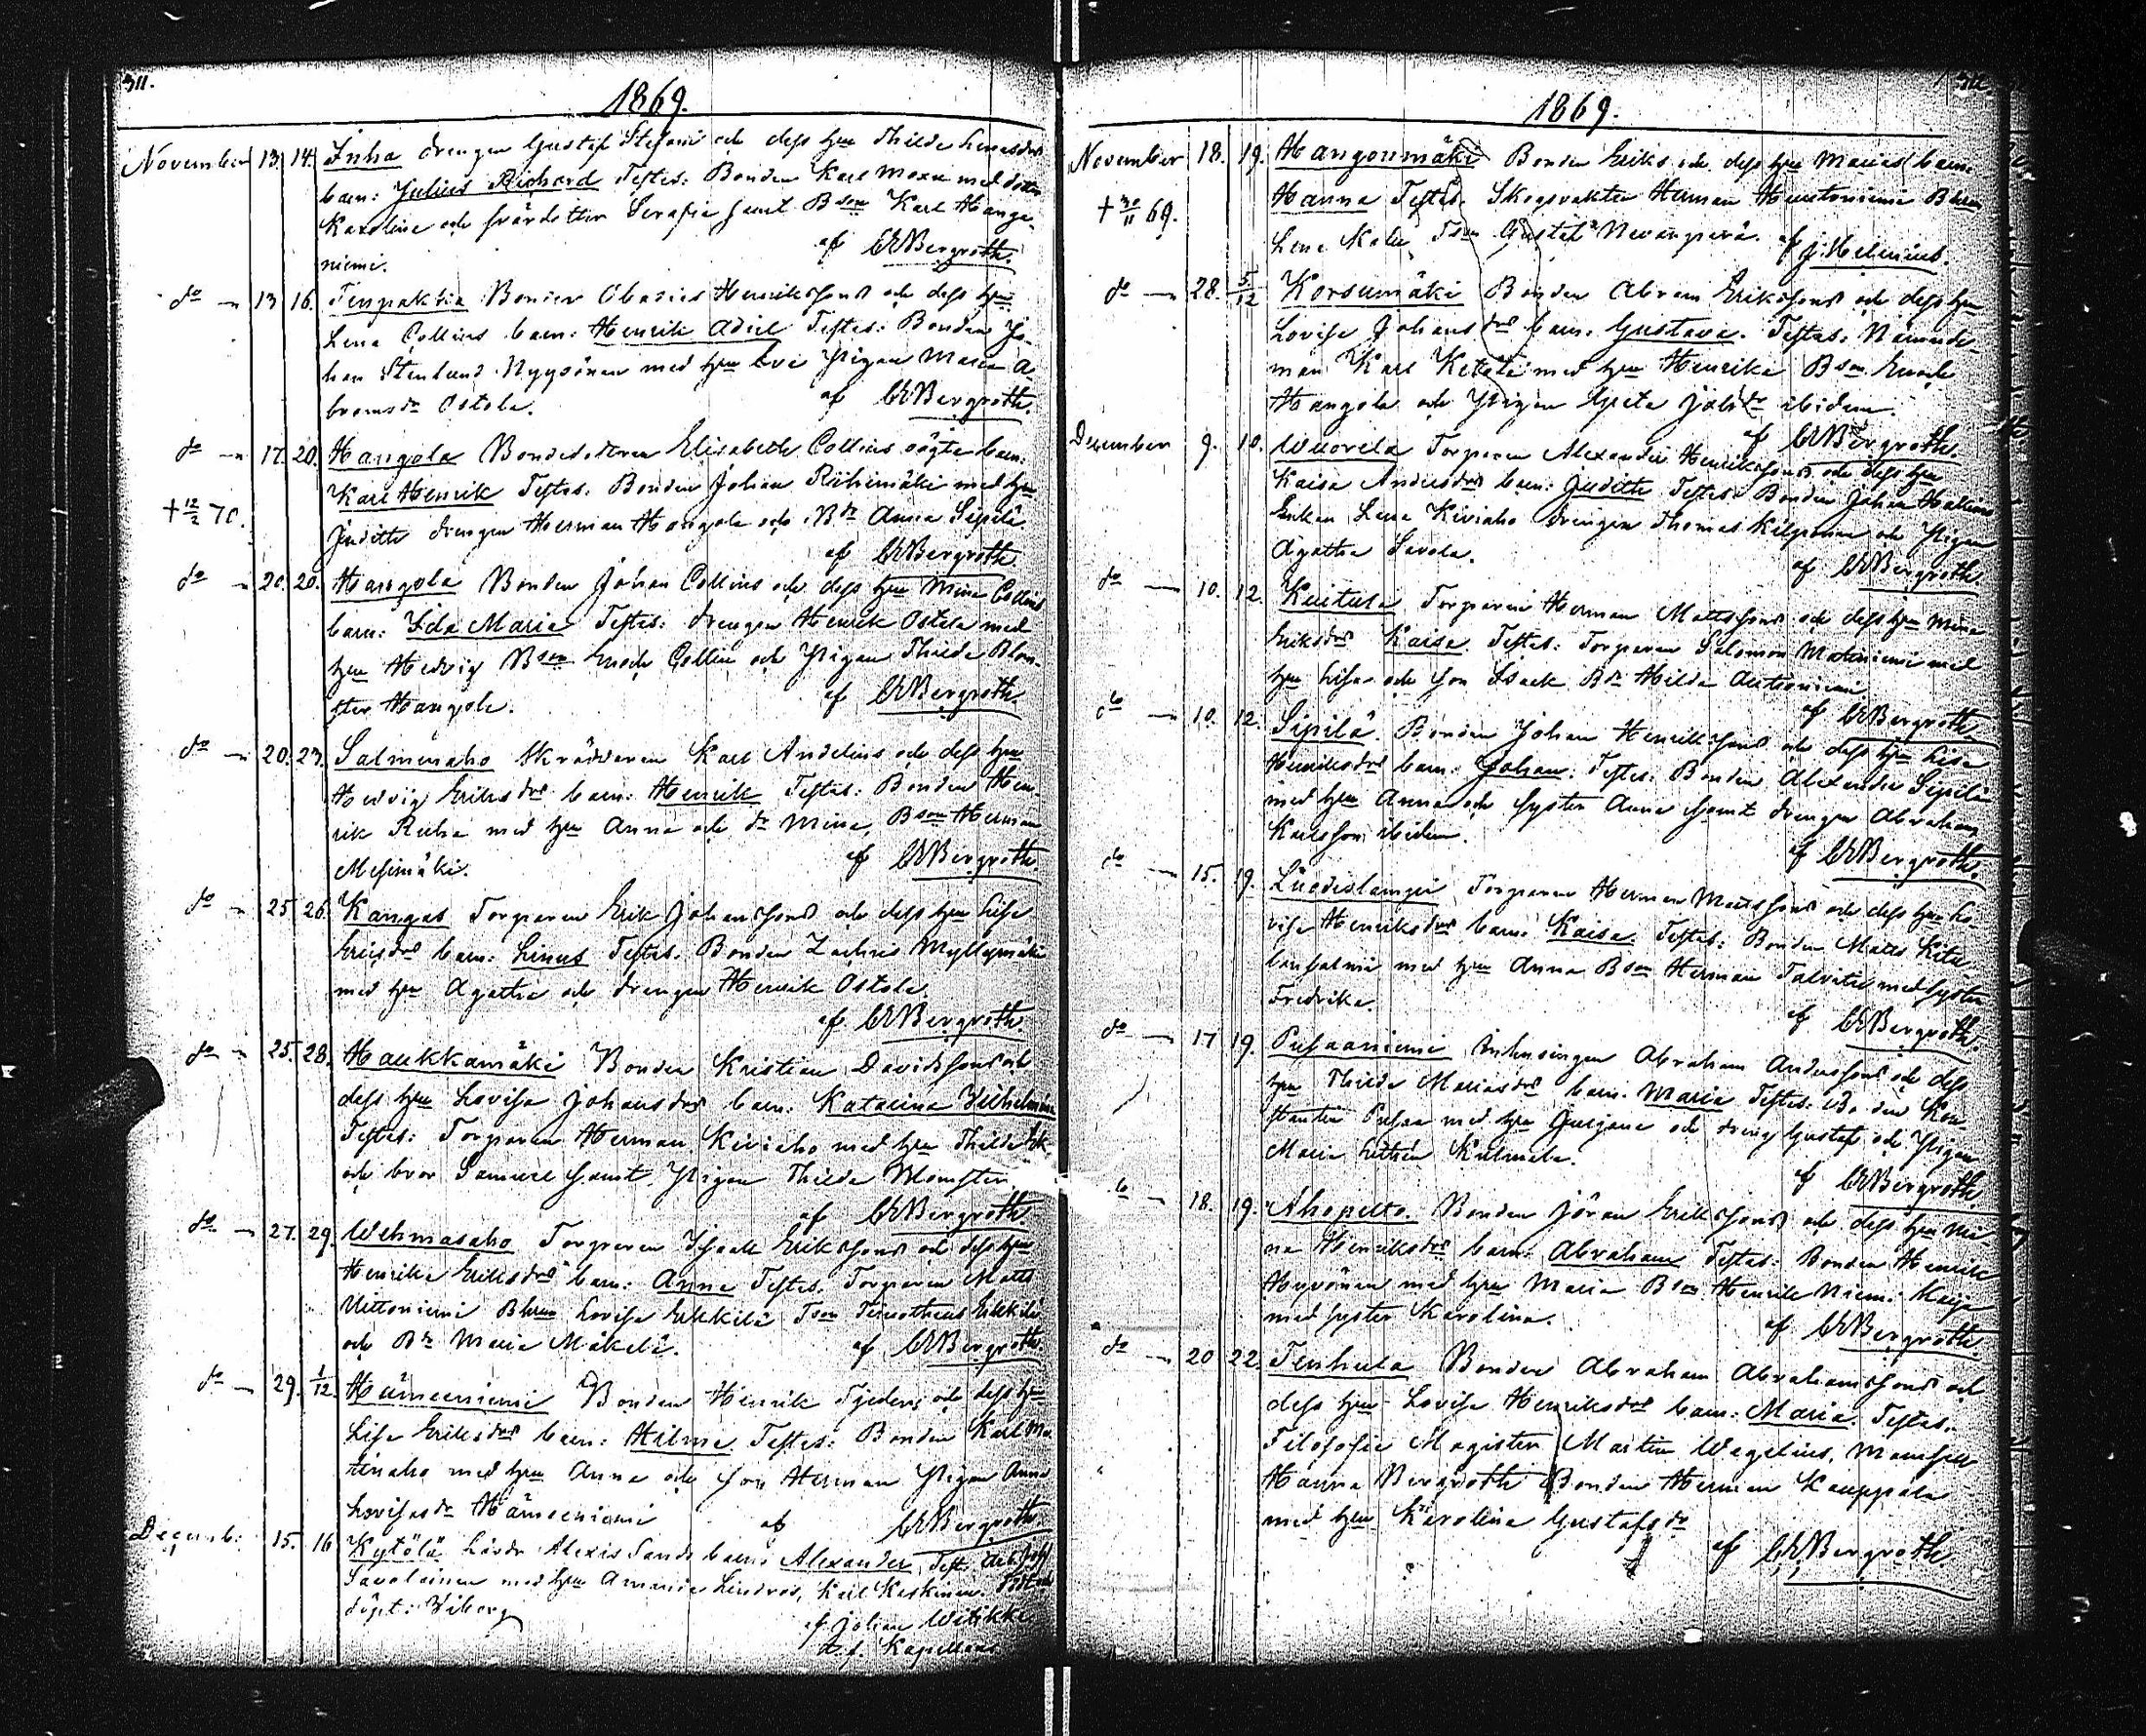 311.
1869.
November 13. 14. Inha drengen Gustaf Stefani och dess hru Thilda
barn: Julius Richard Testes: Bonden Karl Moxu med dotter
Karolina och svärdotter Serafia samt Bson Karl Hange-
niemi. af CABergroth.
do 13 16. Bonden Henrikssons och dess hru
Lena Collins barn: Henrik Adiel Testes: Bonden Jo-
han Stenlund Nyysönen med hru Eva Pigan Maria A-
bramsdr Ostola. af CABergroth.
do 17. 20. Hangola Bondedottren Elisabeth Collins oägta barn:
Karl Henrik Testes: Bonden Johan Riihimäki med hru
+ 12/2 70. Judith drengen Herman Hangola och Bdr Anna Sipilä.
af CABergroth
do 20. 20. Hangola Bonden Johan Collins och dess hru Mina Collins
barn: Ida Maria Testes: drengen Henrik Ostola med
hru Hedvig Bson Enoch Collin och Pigan Thilda Blom-
ster Hangola. af CABergroth.
do 20. 23. Salmenaho Skräddaren Karl Andelins och dess hru
Hedvig Eriksdrs barn: Henrik Testes: Bonden Hen-
rik Riiha med hru Anna och dr Mina, Bson Herman
Mesimäki. af CABergroth
do 25 26. Kangas Torparen Erik Johanssons och dess hru Lisa
Eriksdrs barn: Linus Testes: Bonden Zachris Myllymäki
med hru Agatha och drengen Henrik Ostola.
af CABergroth
do 25. 28. Haukkamäki Bonden Kristian Davidssons och
dess hru Lovisa Johansdrs barn: Katarina Wilhelmina
Testes: Torparen Herman Kiviaho med hru Thilda
och bror Samuel samt Pigan Thilda Blomster.
af CABergroth.
do 27. 29. Wehmasaho Torparen Isaak Erikssons och dess hru
Henrika Eriksdrs barn: Anna Testes: Torparen Matts
Uittoniemi Bhrun Lovisa Erkkilä Tson Timotheus Erkkilä
och Bdr Maria Mäkelä. af CABergroth.
do 29. 1/12. Hämeeniemi Bonden Henrik och dess hru
Lisa Eriksdrs barn: Hilma. Testes: Bonden Karl Ma-
tinaho med hru Anna och son Herman Pigan Anna
Lovisasdr Hämeeniemi af CABergroth.
Decemb: 15. 16 Kytölä Alexis Sands barn: Alexander Test.
Savolainen med hru Amanda Lindros, Karl Keskinen.
döpt i Viborg
af Johan Witikka
Kapellan
1869.
November 18. 19. Hangonmäki Bonden Eriks och dess hru Marias barn:
+ 30/11 69. Hanna Testes: Skogsvakten Herman Huutoniemi Bhrun
Lena Tson Gustaf Nevanperä. af J. Helenius.
do 28. 5/12 Korsumäki Bonden Abram Erikssons och dess hru
Lovisa Johansdrs barn: Gustava. Testes: Nämnde-
man Karl Ketola med hru Henrika Bson Enoch
Hangola och Pigan Greta Johdr ibidem.
af CABergroth.
December 9. 10. Wuorela Torparen Alexander Henrikssons och dess hru
Kaisa Andersdrs barn: Judith Testes: Bonden Johan
Enkan Lena Kiviaho drengen Thomas Kilponen och Pigan
Agatha Savola.
af CABergroth
do 10. 12. Kuitula Torparen Herman Mattssons och dess hru Mina
Eriksdrs Kaisa. Testes: Torparen Salomon Matiniemi med
hru Lisa och son Isaak Bdr Hilda Autioniemi.
af CABergroth
do 10. 12. Sipilä. Bonden Johan Henrikssons och dess hru Lisa
Henriksdrs barn: Johan: Testes: Bonden Alexander Sipilä
med hru Anna och syster Anna samt drengen Abraham
Karlsson ibidem.
af CABergroth.
do 15. 19. Torparen Herman Mattssons och dess hru Lo-
visa Henriksdrs barn: Kaisa. Testes: Bonden Matts Kitu-
sensalmi med hru Anna Bson Herman Talvitie med syster
Fredrika.
af CABergroth.
do 17 19. Pusaaniemi Inhysingen Abraham Anderssons och dess
hru Thilda Mariasdrs barn: Maria Testes: Bonden Kon-
stantin Pusaa med hru Gustava och dreng Gustaf och Pigan
Maria Kulmala.
af CABergroth.
do 18. 19. Ahopelto. Bonden Jöran Erikssons och dess hru Mi-
na Henriksdrs barn: Abraham Testes: Bonden Henrik
Hyvönen med hru Maria Bson Henrik Niemi Maija
med syster Karolina.
af CABergroth.
do 20 22. Tenhula Bonden Abraham Abrahamssons och
dess hru Lovisa Henriksdrs barn: Maria. Testes.
Filosofie Magister Martin Wegelius, Mamsell
Hanna Bergroth Bonden Herman Kauppala
med hru Karolina Gustafsdr
af CABergroth